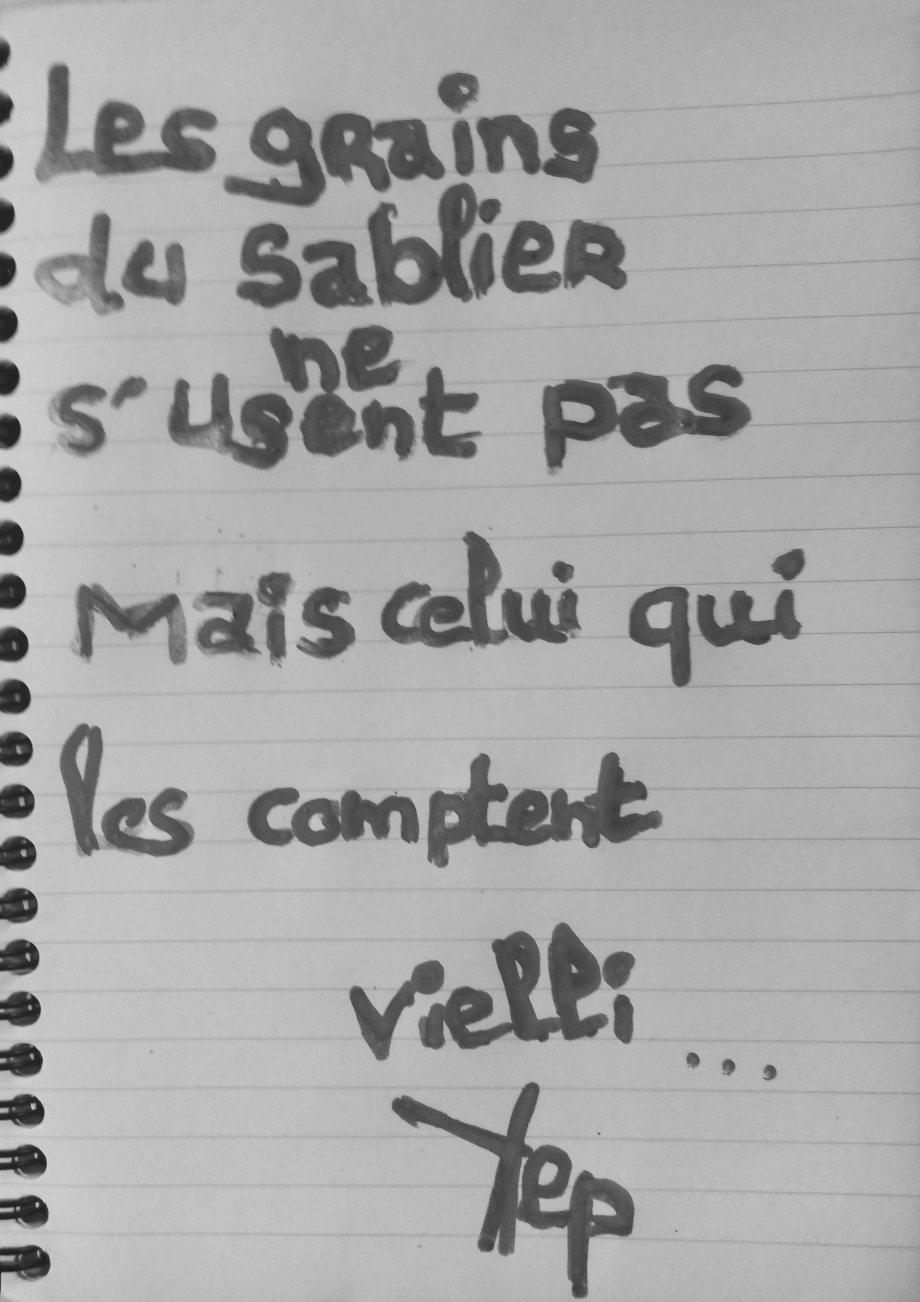 Les grains
du sablier
ne
s'usent pas
Mais celui qui
les comptent
vielli ...
Yep